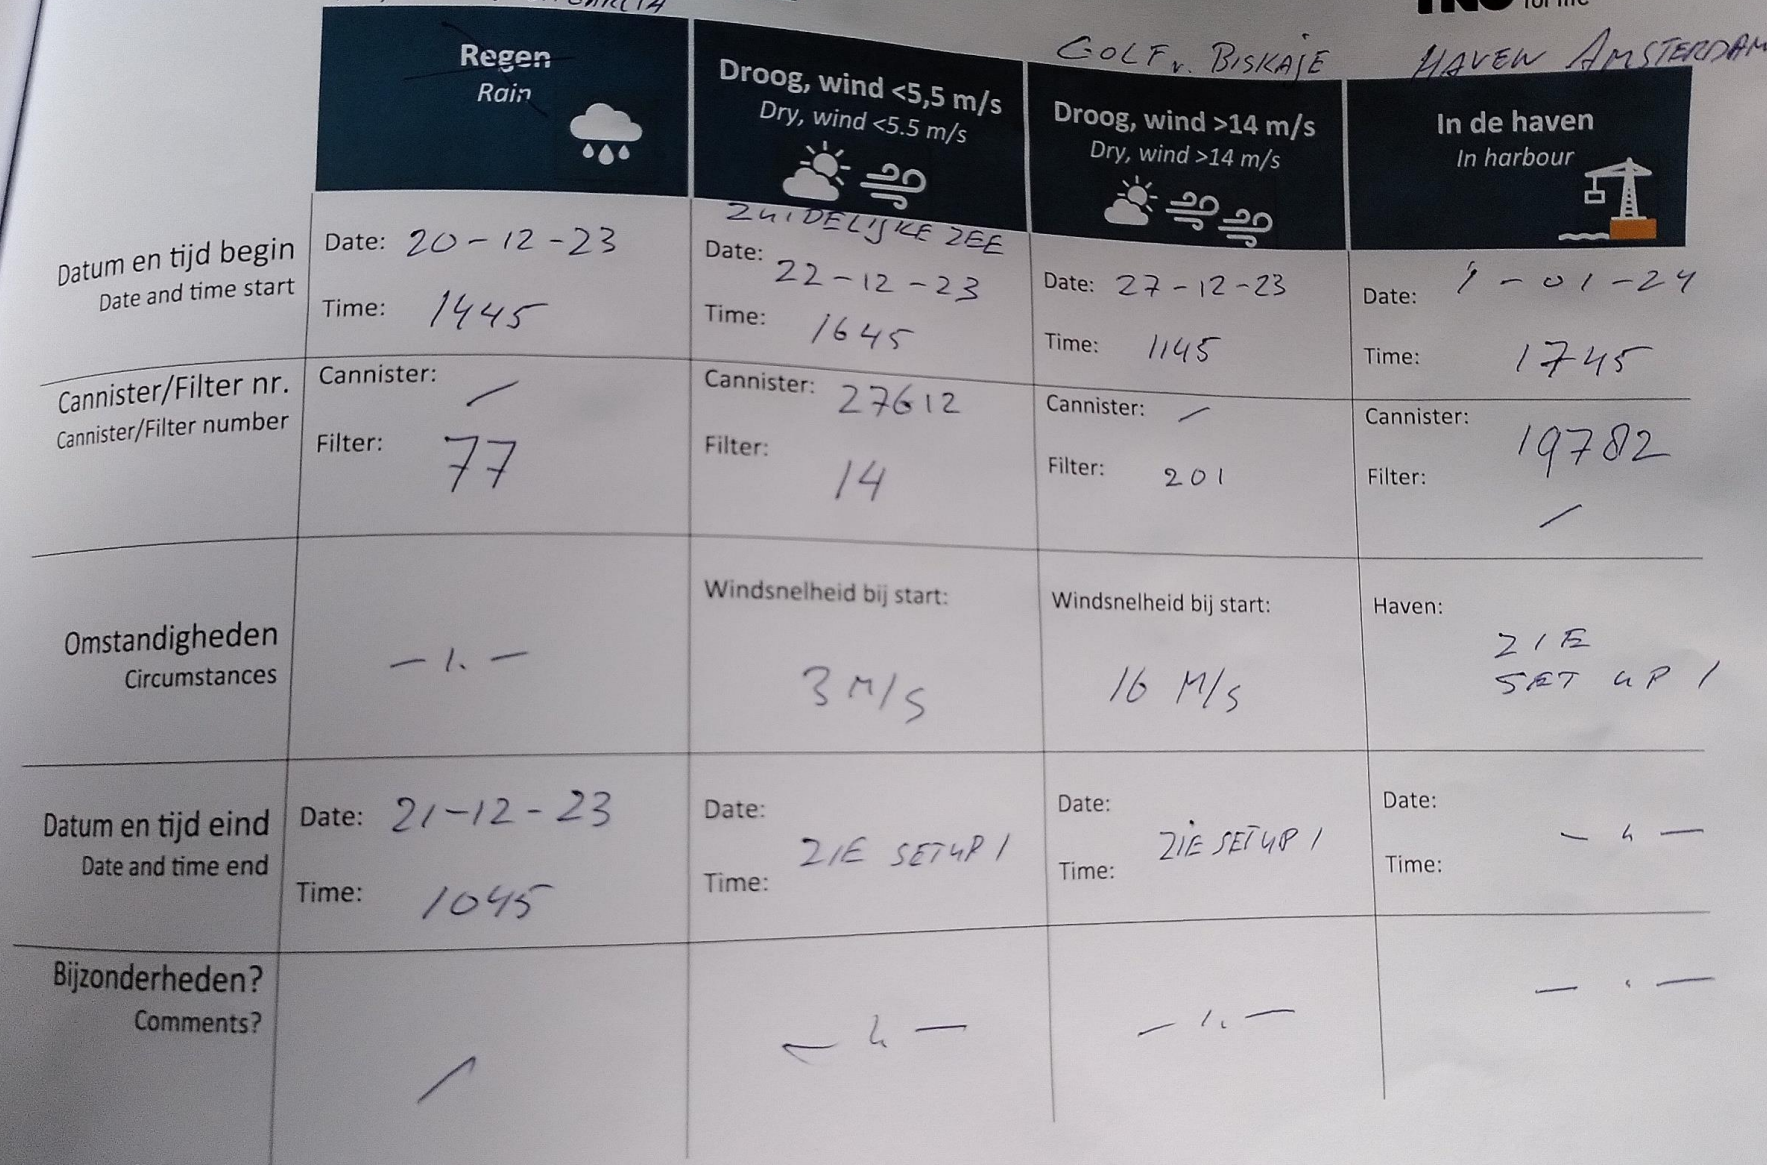 Regen
Rain
Droog, wind <5,5 m/s
Dry, wind <5.5 m/s
GOLF v. BISKAJE
Droog, wind >14 m/s
Dry, wind >14 m/s
HAVEN AMSTERDAM
In de haven
In harbour
Datum en tijd begin
Date and time start
Date: 20-12-23
Time: 1445
ZUIDELIJKE ZEE
Date: 22-12-23
Time: 1645
Date: 27-12-23
Time: 1145
Date: 1-01-24
Time: 1745
Cannister/Filter nr.
Cannister/Filter number
Cannister: /
Filter: 77
Cannister: 27612
Filter: 14
Cannister: /
Filter: 201
Cannister: 19782
Filter: /
Omstandigheden
Circumstances
- 1. -
Windsnelheid bij start:
3 M/S
Windsnelheid bij start:
16 M/S
Haven:
ZIE
SET UP 1
Datum en tijd eind
Date and time end
Date: 21-12-23
Time: 1045
Date:
ZIE SETUP 1
Time:
Date:
ZIE SETUP 1
Time:
Date:
Time:
Bijzonderheden?
Comments?
/
- 1. -